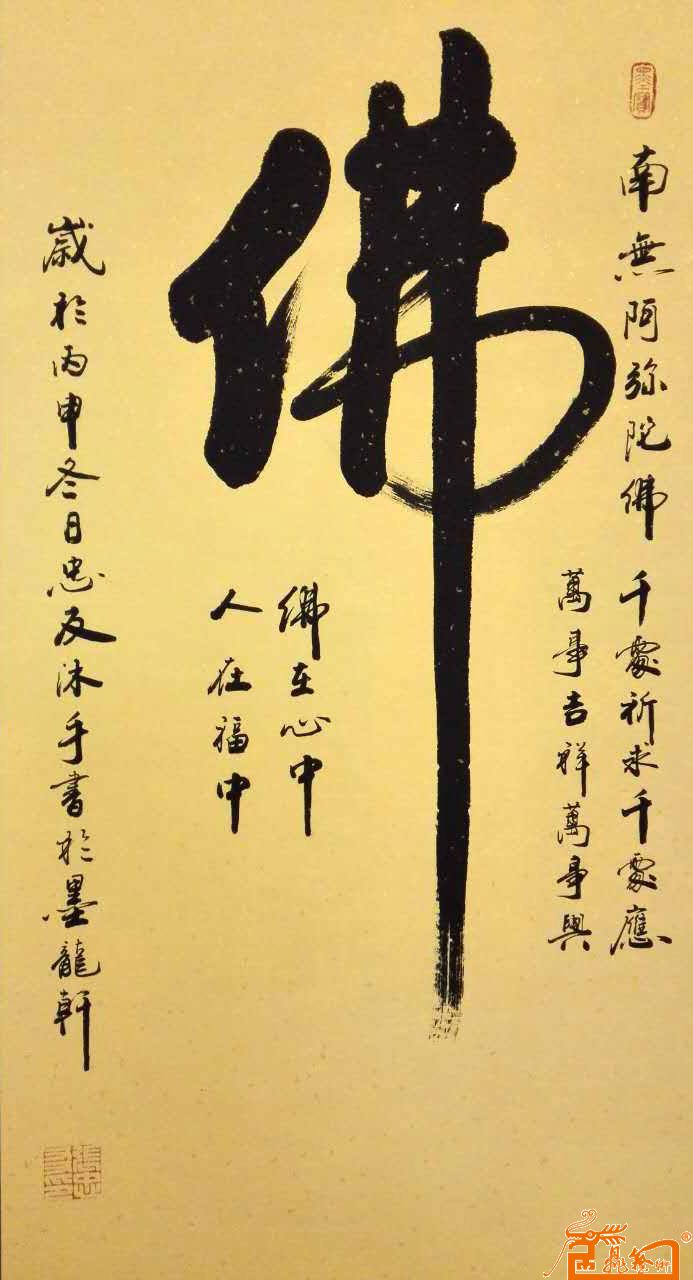 南無阿弥陀佛 千處祈求千處應
萬事吉祥萬事興
佛
佛在心中
人在福中
歲於丙申冬日忠友沐手書於墨龍軒